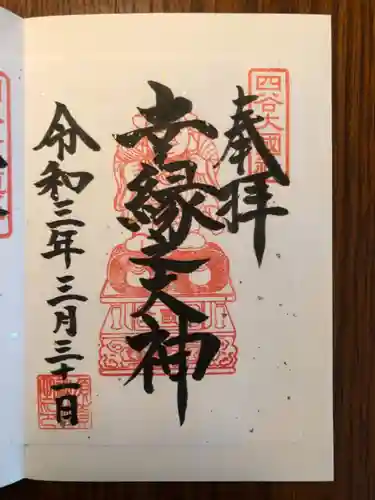 奉拝
四谷大國
幸縁之大神
令和三年三月三十一日